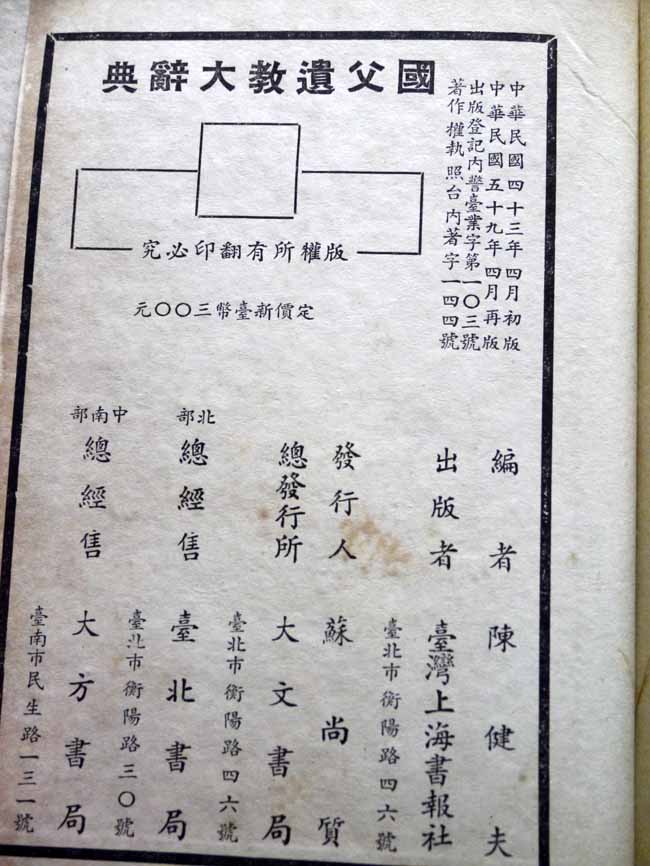 國父遺教大辭典
中華民國四十三年四月初版
中華民國五十九年四月再版
出版登記內警臺業字第一〇三號
著作權執照台內著字一四四號
版權所有翻印必究
定價新臺幣三〇〇元
編者陳健夫
出版者臺灣上海書報社
臺北市衡陽路四六號
發行人蘇尚質
總發行所大文書局
臺北市衡陽路四六號
北部總經售臺北書局
臺北市衡陽路三〇號
中南部總經售大方書局
臺南市民生路一三一號